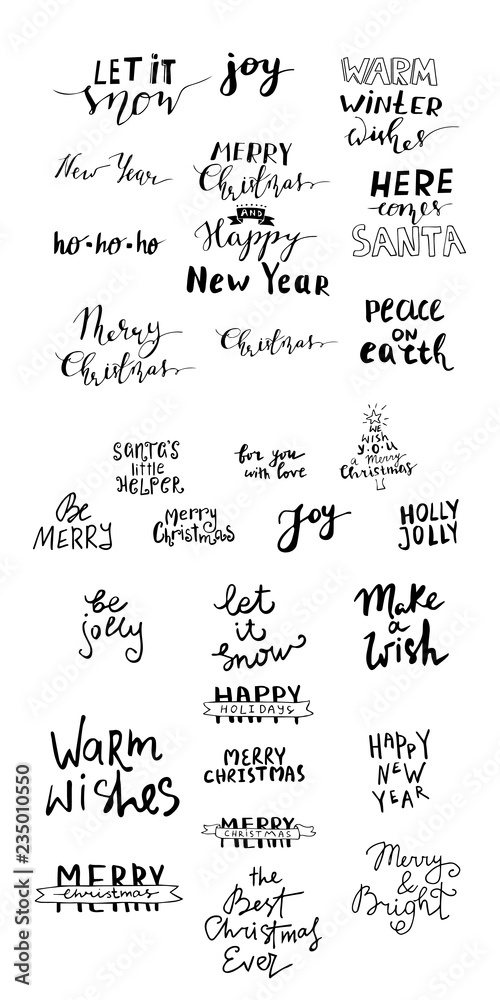 LET iT
snow
joy
WARM
WiNTER
wishes
New Year
MERRY
Christmas
AND
Happy
New Year
HERE
comes
SANTA
ho-ho-ho
Merry
Christmas
Christmas
PEACE
ON
earth
SANTA'S
little
HELPER
for you
with love
WE
wish
Y.O.U
a Merry
Christmas
Be
MERRY
Merry
Christmas
Joy
HOLLY
JOLLY
be
jolly
let
it
snow
Make
a
Wish
HAPPY
HOLIDAYS
Warm
wishes
MERRY
CHRISTMAS
HAPPY
NEW
YEAR
MERRY
CHRISTMAS
MERRY
christmas
the
Best
Christmas
Ever
Merry
&
Bright
Adobe Stock | #235010550